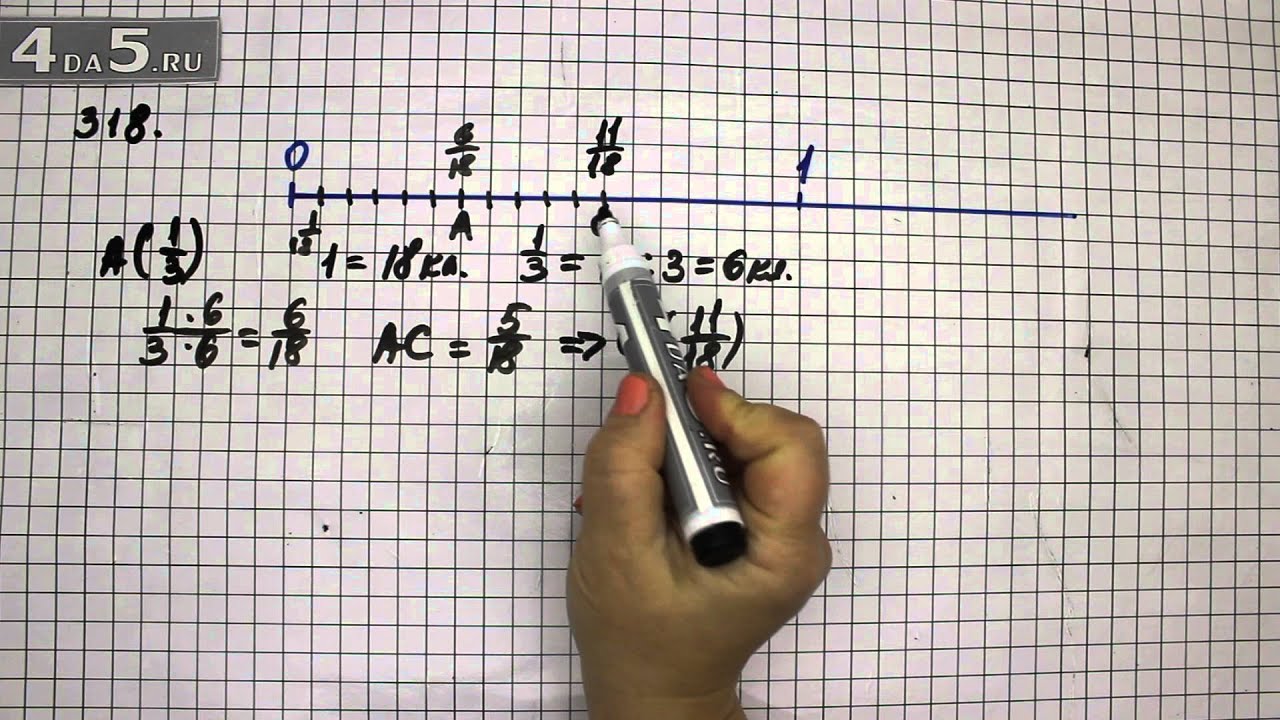 4DA5.RU
318.
0 6/18 11/18 1
1/18 A
A(1/3) 1 = 18 кл. 1/3 = : 3 = 6 кл.
1·6/3·6 = 6/18 AC = 5/18 => ( 11/18)